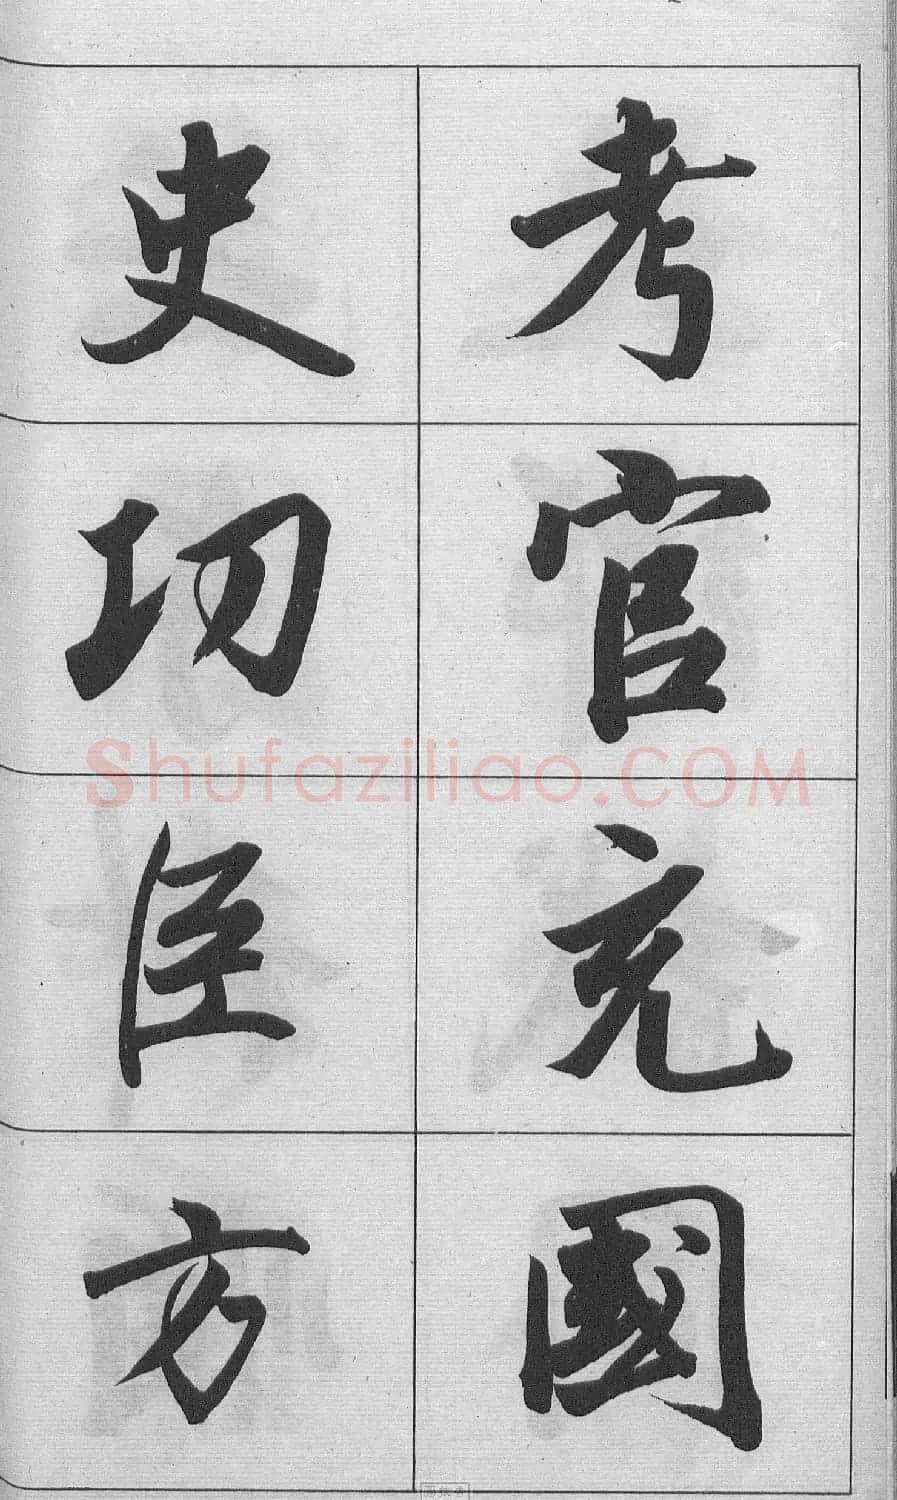 考官充國
史功臣方
Shufaziliao.COM